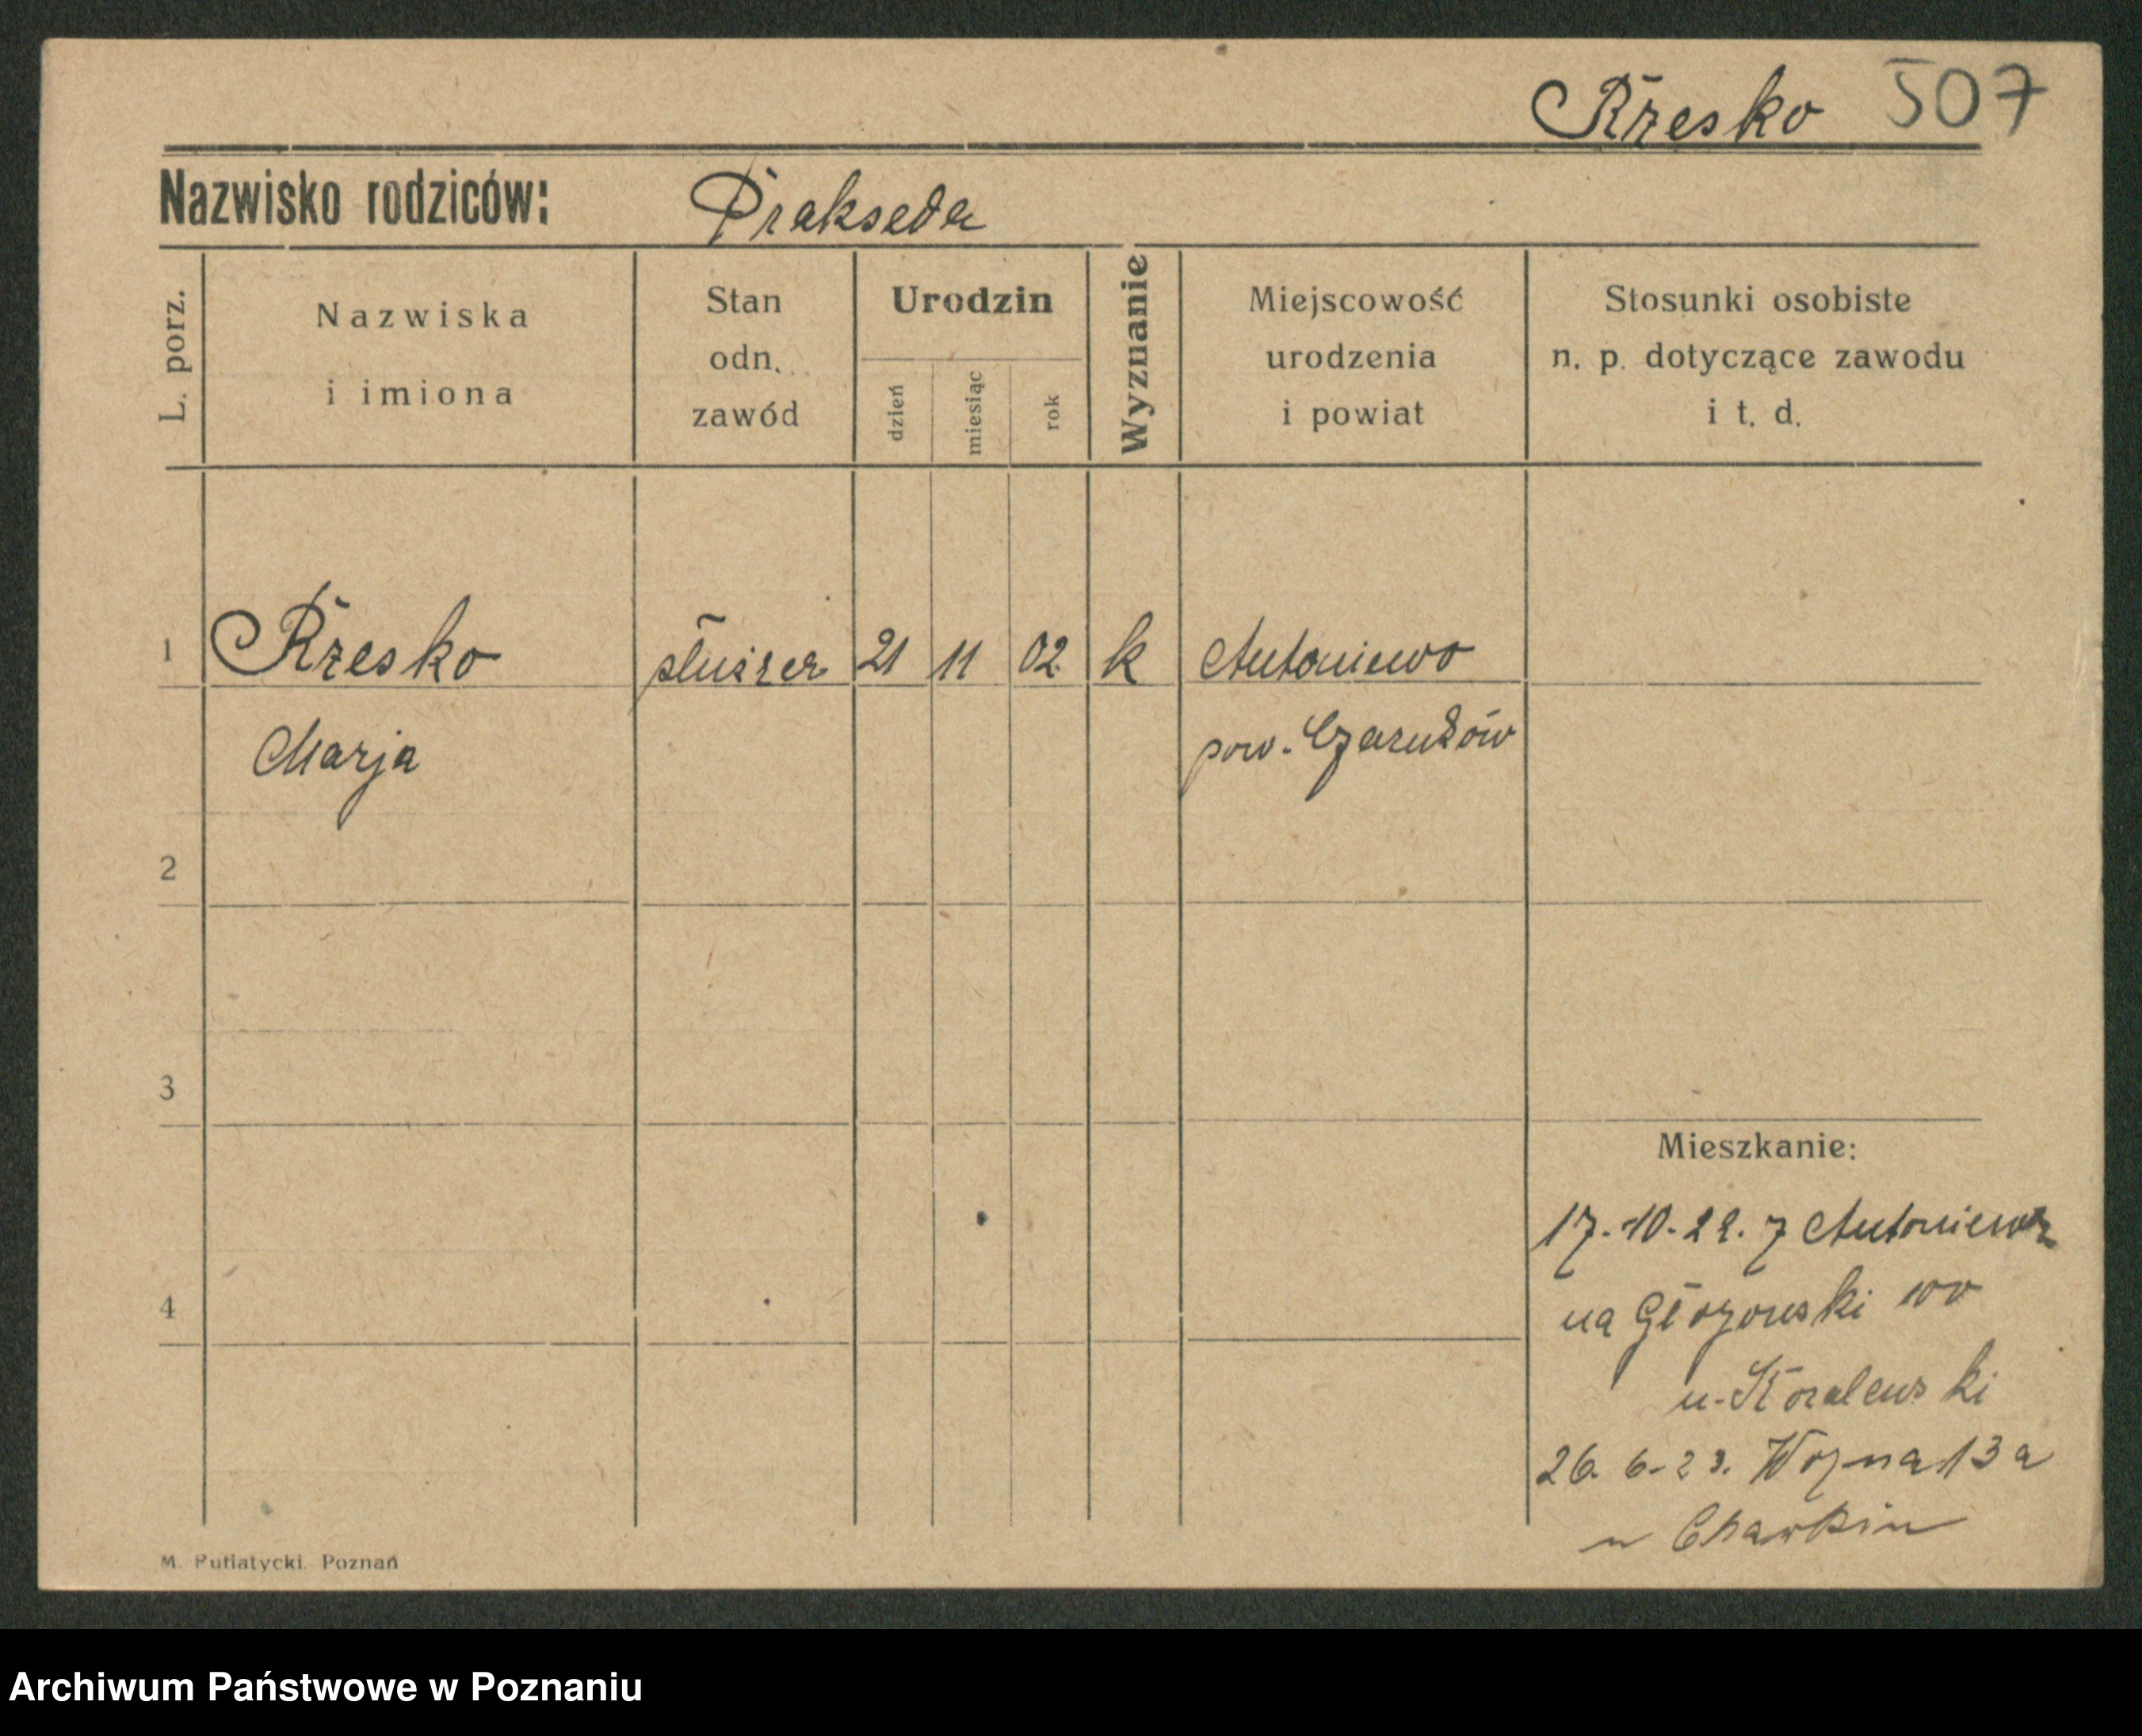 Rzesko 507
Nazwisko rodziców: Prakseda
L. porz.
Nazwiska
i imiona
Stan
odn.
zawód
Urodzin
dzień
miesiąc
rok
Wyznanie
Miejscowość
urodzenia
i powiat
Stosunki osobiste
n. p. dotyczące zawodu
i t. d.
1 Rzesko służąca 21 11 02 k Antoniewo
Marja pow. Czarnków
2
3
Mieszkanie:
17.-10-22. z Antoniewa
4
na Głogowski
u-Koralewski
26. 6-23. Wozna 13a
M. Putiatycki. Poznań
Archiwum Państwowe w Poznaniu